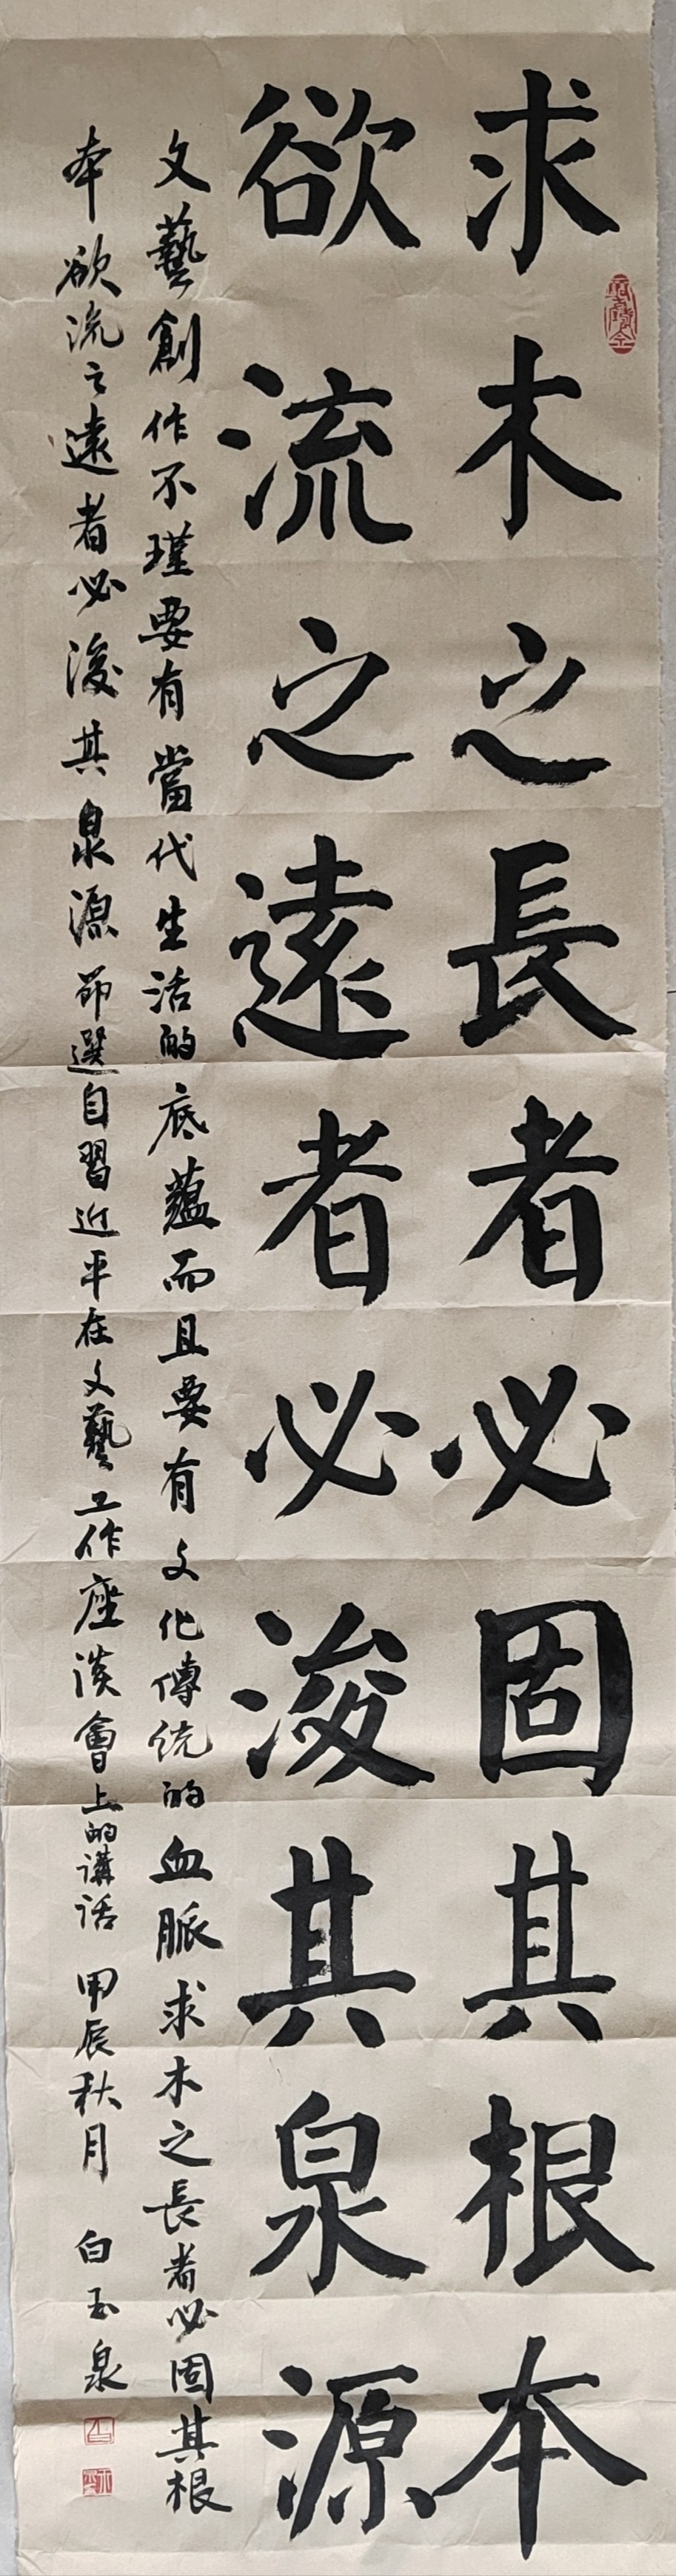 求木之長者必固其根本
欲流之遠者必浚其泉源
文藝創作不瑾要有當代生活的底蘊而且要有文化傳統的血脈求木之長者必固其根
本欲流之遠者必浚其泉源節選自習近平在文藝工作座談會上的講話 甲辰秋月 白玉泉